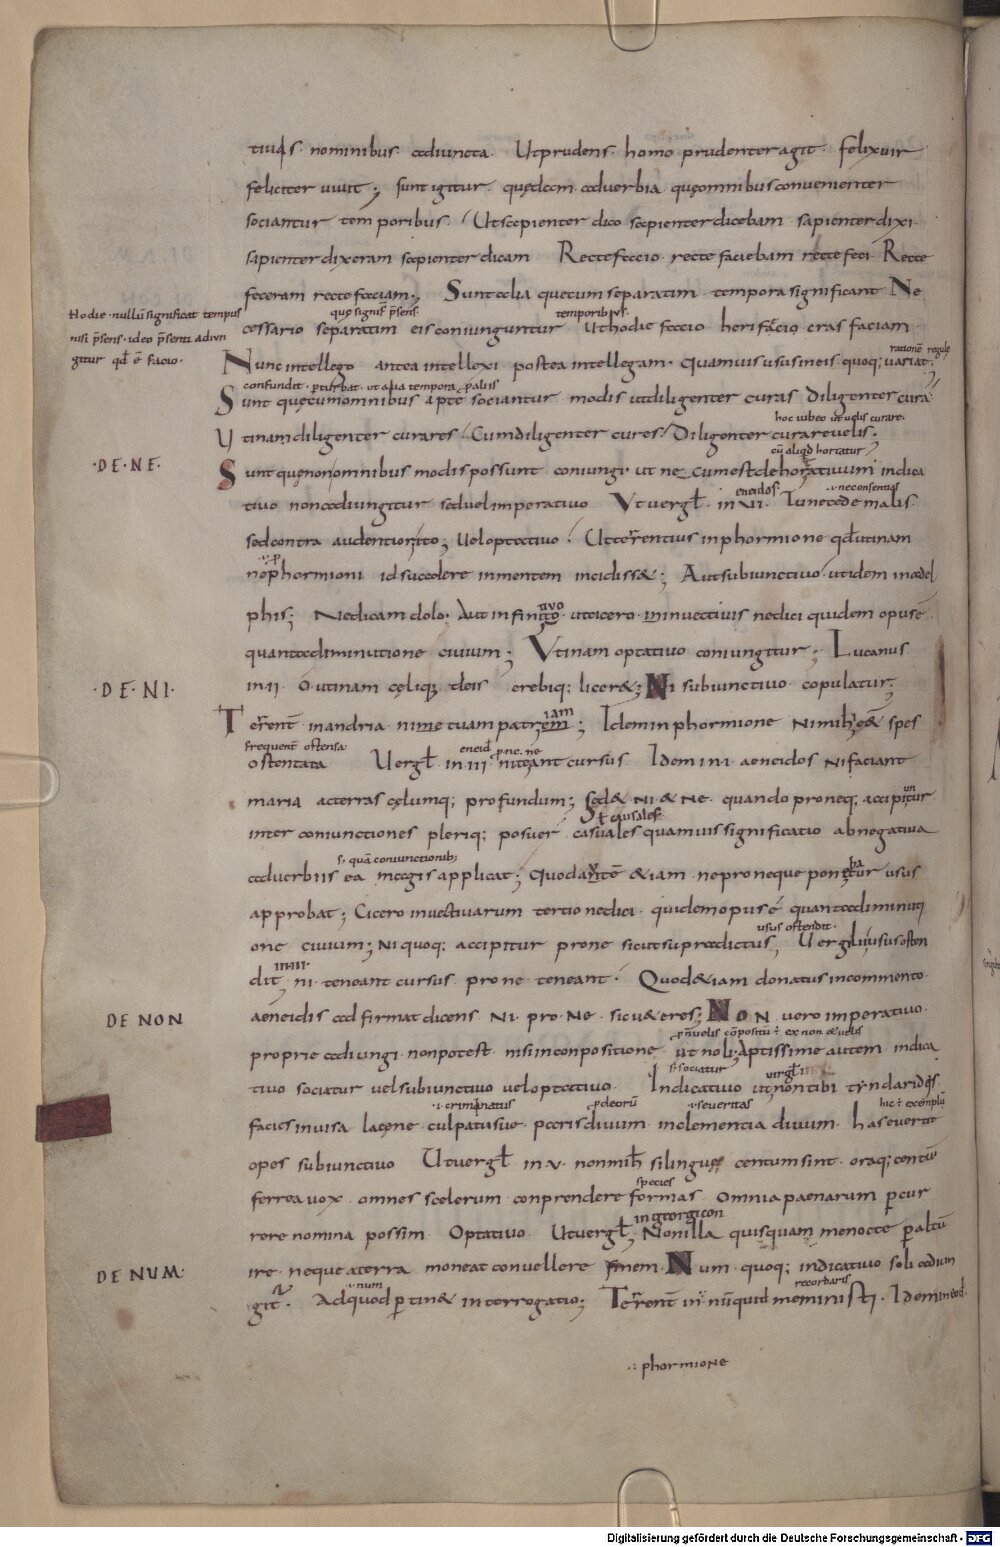 tiuis nominibus adiuncta. Ut prudens homo prudenter agit. felix uir
feliciter uiuit; sunt igitur quędam aduerbia quę omnibus conuenienter
sociantur temporibus. Ut sapienter dico sapienter dicebam sapienter dixi.
sapienter dixeram sapienter dicam Recte facio recte faciebam recte feci Recte
feceram recte faciam; Sunt alia quę cum separatim tempora significant Ne
Hodie nullū significat tempus
nisi p̄sens. ideo p̄senti adiun
gitur qđ ē facio.
quę signif p̄sens. temporibus
cessario separatim eis coniunguntur Ut hodie facio heri facio cras faciam.
rationē regulę
Nunc intellego antea intellexi postea intellegam. Quamuis usus in eis quoq; uariat;
confundit. p̱turbat. ut alia tempora p̱ aliis
Sunt quę cum omnibus apte sociantur modis ut diligenter curas Diligenter cura
hoc iubeo ut uelis curare.
Utinam diligenter curares! Cum diligenter cures! Diligenter curare uelis;
cū aliqđ hortatur
·DE·NE·
Sunt quę non omnibus modis possunt coniungi. ut ne Cum est dehortatiuum indica
eneidos. ne consentias
tiuo non adiungitur sed uel imperatiuo Ut uergł in VI. Tu ne cede malis.
sed contra audentior ito; Uel optatiuo! Ut terrentius in phormione qđ utinam
ne phormioni id suadere in mentem incidisset; Aut subiunctiuo ut idem in adel
phis; Ne dicam dolo. Aut infinitiuo ut cicero in inuectiuis ne dici quidem opus ē
quanta diminutione ciuium; Utinam optatiuo coniungitur; Lucanus
·DE·NI·
in II O utinam cęliq; deis erebiq; liceret; Ni subiunctiuo copulatur;
Terrent̄ in andria ni metuam patrem; Idem in phormione Ni mihi eēt spes
frequent̄ ostensa
eneid p̱ ne. ne
ostentata Uergł in III ni teneant cursus Idem in I aeneidos Ni faciant
maria ac terras cęlumq; profundum; Sed et Ni et Ne quando pro neq; accipitur
ł causales
inter coniunctiones pleriq; posuer casuales quamuis significatio abnegatiua
s; quā coniunctionib;
aduerbiis ea magis applicat; Quod autē etiam ne pro neque ponitur usus
approbat; Cicero inuectiuarum tertio ne dici quidem opus ē quanta diminuti
usus ostendit.
one ciuium; Ni quoq; accipitur pro ne sicut supra dictus, Uergilii usus osten
in III
dit; ni teneant cursus pro ne teneant. Quod etiam donatus in commento
DE NON
aeneidis adfirmat dicens Ni pro Ne sic ueteres; Non uero imperatiuo
p̱ n̄ uelis cōpositū ÷ ex non et uelis
proprie adiungi non potest nisi in conpositione ut noli; Aptissime autem indica
s; sociatur uirgł II
tiuo sociatur uel subiunctiuo uel optatiuo Indicatiuo ut non tibi tyndaridis
·i· criminatus p̱ deorū seueritas hic ÷ exemplū
facies inuisa lacęne culpatusue paris diuum inclementia diuum has euertit
opes subiunctiuo Ut uergł in V non mihi si linguę centum sint oraq; centū
species
ferrea uox omnes scelerum conprendere formas Omnia paenarum p̱cur
in georgicon
rere nomina possim Optatiuo Ut uergł; Non illa quisquam me nocte p̱ altū
DE NUM·
ire neque a terra moneat conuellere funem. Num quoq; indicatiuo soli adiun
·i· num recordaris
gitur. Ad quod p̱tinet interrogatio; Terrent̄ in nūquid meministi. Idem in eod
phormione
Digitalisierung gefördert durch die Deutsche Forschungsgemeinschaft - DFG